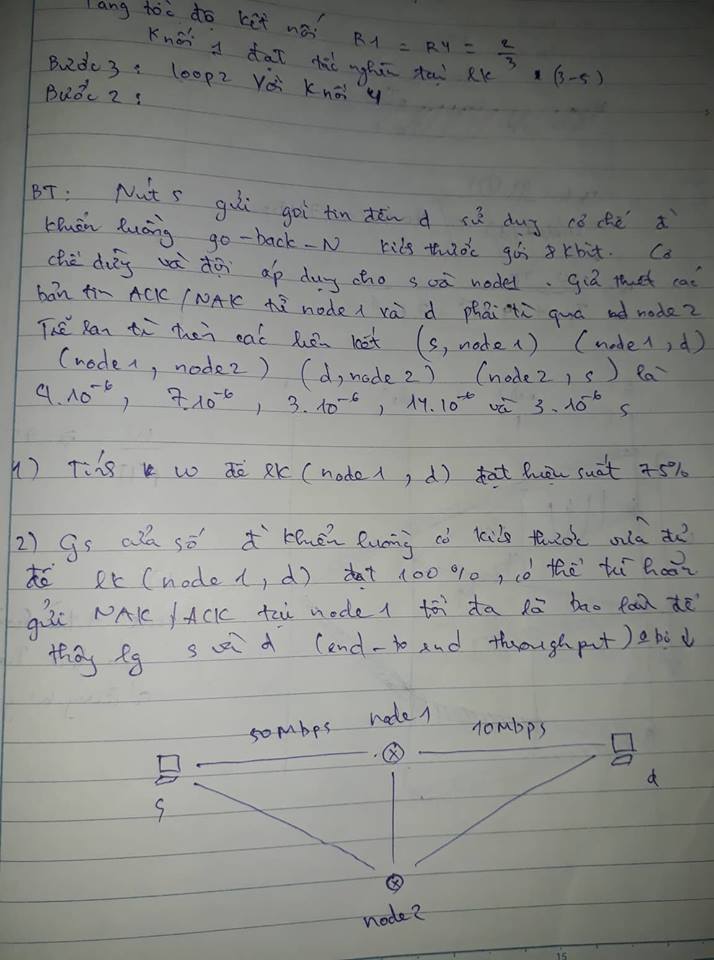 Tăng tốc độ kết nối R1 = R4 = 2/3
K nối 1 đạt tắc nghẽn tại lk (3-5)
Bước 3: loop 2 với K nối 4
Bước 2:
BT: Nút s gửi gói tin đến d sử dụng cơ chế đ'
khuển luồng go-back-N kích thước gói 8 kbit. Cơ
chế dừng và đợi áp dụng cho s và node1. Giả thuết các
bản tin ACK/NAK từ node 1 và d phải từ qua node 2
Trễ lan từ trên các liên kết (s, node1) (node1, d)
(node1, node2) (d, node2) (node2, s) là
4.10⁻⁶, 7.10⁻⁶, 3.10⁻⁶, 14.10⁻⁶ và 3.10⁻⁶ s
1) Tính w để lk (node1, d) đạt hiệu suất 75%
2) Gs cửa sổ đ' khuển luồng có kích thước vừa đủ
để lk (node1, d) đạt 100%, có thể trì hoãn
gửi NAK/ACK tại node 1 tối đa là bao lâu để
thấy lg s và d (end-to end throughput) bị ↓
50Mbps node1 10Mbps
s d
node2
15